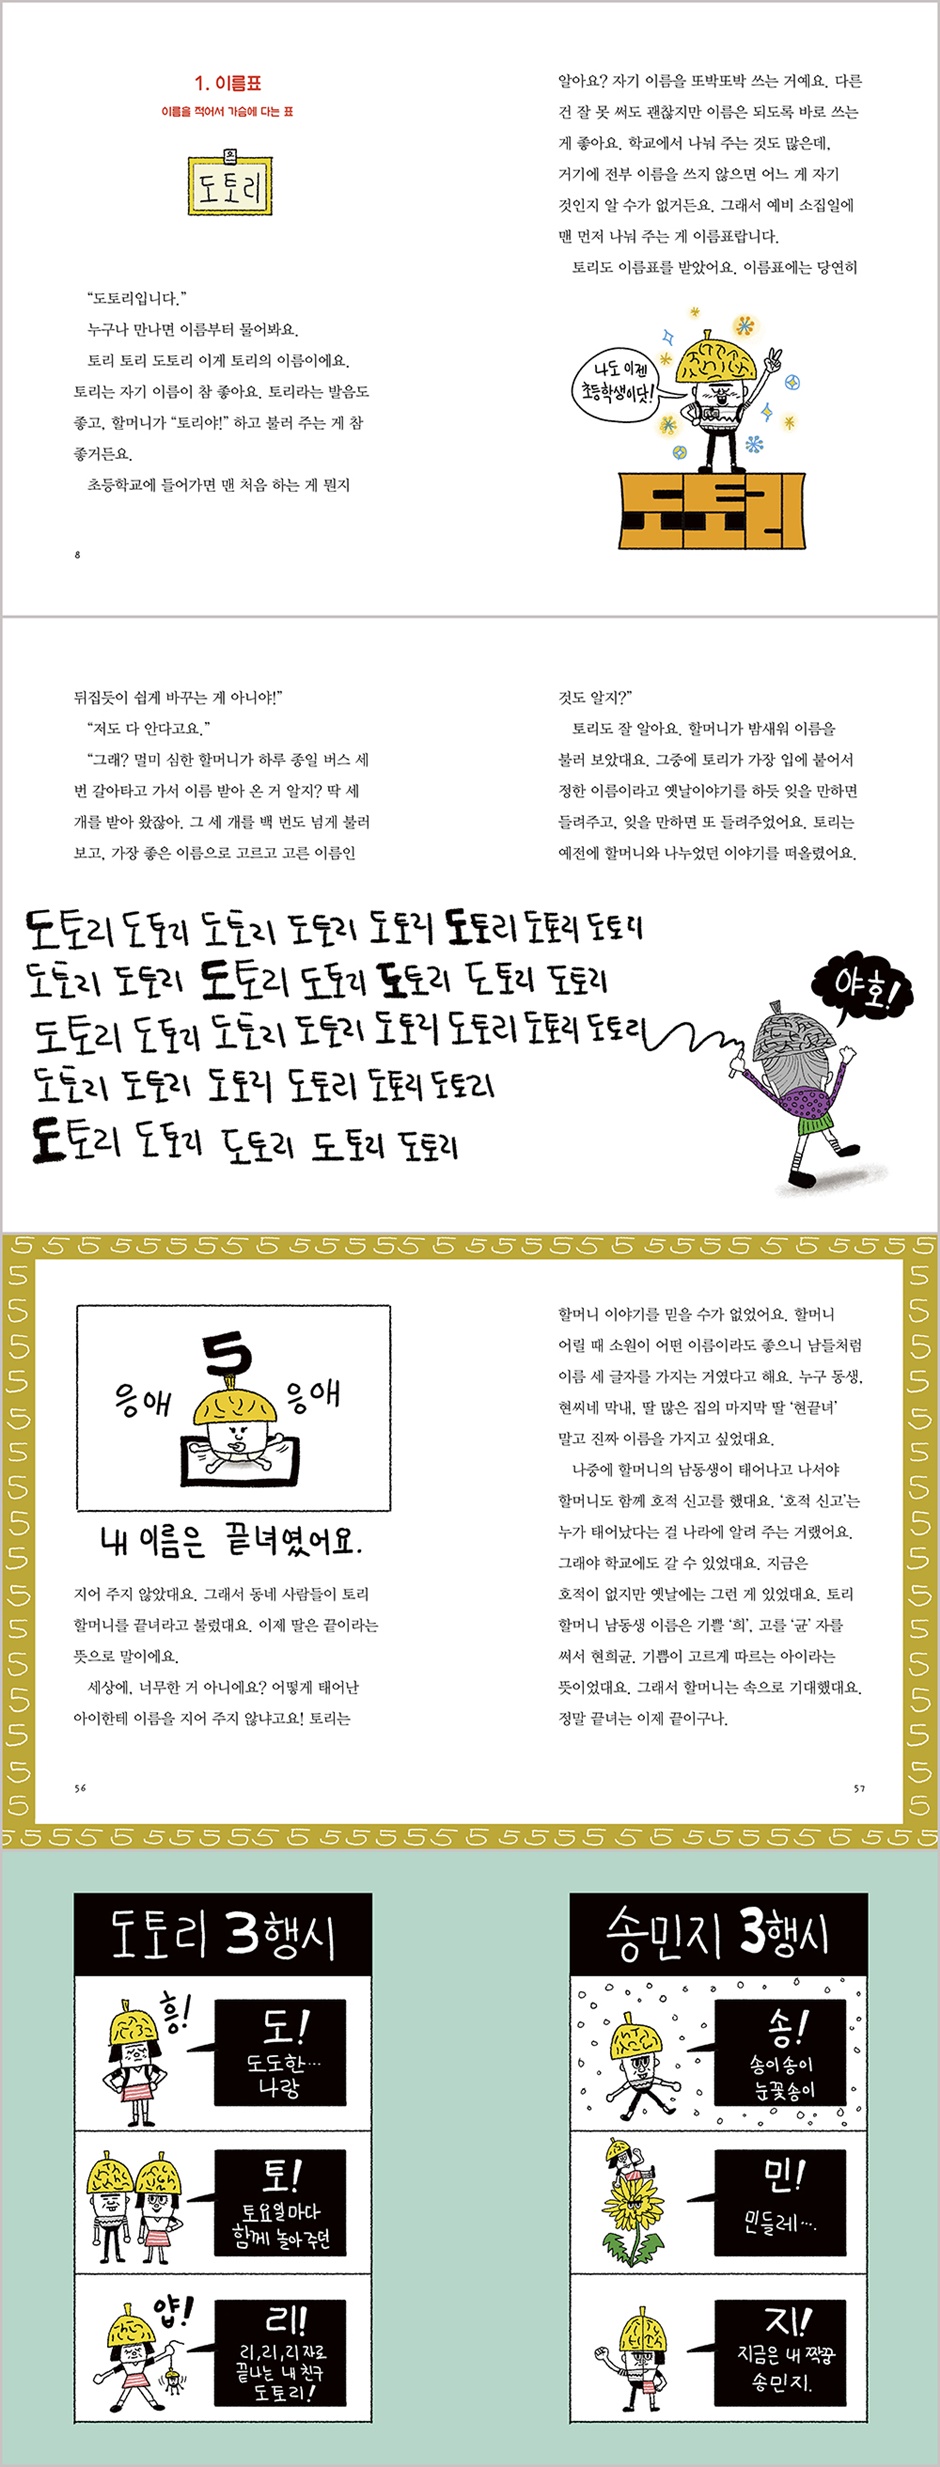 1. 이름표
이름을 적어서 가슴에 다는 표
도토리
“도토리입니다.”
누구나 만나면 이름부터 물어봐요.
토리 토리 도토리 이게 토리의 이름이에요.
토리는 자기 이름이 참 좋아요. 토리라는 발음도
좋고, 할머니가 “토리야!” 하고 불러 주는 게 참
좋거든요.
초등학교에 들어가면 맨 처음 하는 게 뭔지
8
알아요? 자기 이름을 또박또박 쓰는 거예요. 다른
건 잘 못 써도 괜찮지만 이름은 되도록 바로 쓰는
게 좋아요. 학교에서 나눠 주는 것도 많은데,
거기에 전부 이름을 쓰지 않으면 어느 게 자기
것인지 알 수가 없거든요. 그래서 예비 소집일에
맨 먼저 나눠 주는 게 이름표랍니다.
토리도 이름표를 받았어요. 이름표에는 당연히
나도 이젠
초등학생이닷!
도토리
뒤집듯이 쉽게 바꾸는 게 아니야!”
“저도 다 안다고요.”
“그래? 멀미 심한 할머니가 하루 종일 버스 세
번 갈아타고 가서 이름 받아 온 거 알지? 딱 세
개를 받아 왔잖아. 그 세 개를 백 번도 넘게 불러
보고, 가장 좋은 이름으로 고르고 고른 이름인
것도 알지?”
토리도 잘 알아요. 할머니가 밤새워 이름을
불러 보았대요. 그중에 토리가 가장 입에 붙어서
정한 이름이라고 옛날이야기를 하듯 잊을 만하면
들려주고, 잊을 만하면 또 들려주었어요. 토리는
예전에 할머니와 나누었던 이야기를 떠올렸어요.
도토리 도토리 도토리 도토리 도토리 도토리 도토리 도토리
도토리 도토리 도토리 도토리 도토리 도토리 도토리
도토리 도토리 도토리 도토리 도토리 도토리 도토리 도토리
도토리 도토리 도토리 도토리 도토리 도토리
도토리 도토리 도토리 도토리 도토리
야호!
5
응애 응애
내 이름은 끝녀였어요.
지어 주지 않았대요. 그래서 동네 사람들이 토리
할머니를 끝녀라고 불렀대요. 이제 딸은 끝이라는
뜻으로 말이에요.
세상에, 너무한 거 아니에요? 어떻게 태어난
아이한테 이름을 지어 주지 않냐고요! 토리는
56
할머니 이야기를 믿을 수가 없었어요. 할머니
어릴 때 소원이 어떤 이름이라도 좋으니 남들처럼
이름 세 글자를 가지는 거였다고 해요. 누구 동생,
현씨네 막내, 딸 많은 집의 마지막 딸 ‘현끝녀’
말고 진짜 이름을 가지고 싶었대요.
나중에 할머니의 남동생이 태어나고 나서야
할머니도 함께 호적 신고를 했대요. ‘호적 신고’는
누가 태어났다는 걸 나라에 알려 주는 거랬어요.
그래야 학교에도 갈 수 있었대요. 지금은
호적이 없지만 옛날에는 그런 게 있었대요. 토리
할머니 남동생 이름은 기쁠 ‘희’, 고를 ‘균’ 자를
써서 현희균. 기쁨이 고르게 따르는 아이라는
뜻이었대요. 그래서 할머니는 속으로 기대했대요.
정말 끝녀는 이제 끝이구나.
57
도토리 3행시
흥!
도!
도도한…
나랑
토!
토요일마다
함께 놀아 주던
얍!
리!
리, 리, 리 자로
끝나는 내 친구
도토리!
송민지 3행시
송!
송이송이
눈꽃송이
민!
민들레….
지!
지금은 내 짝꿍
송민지.